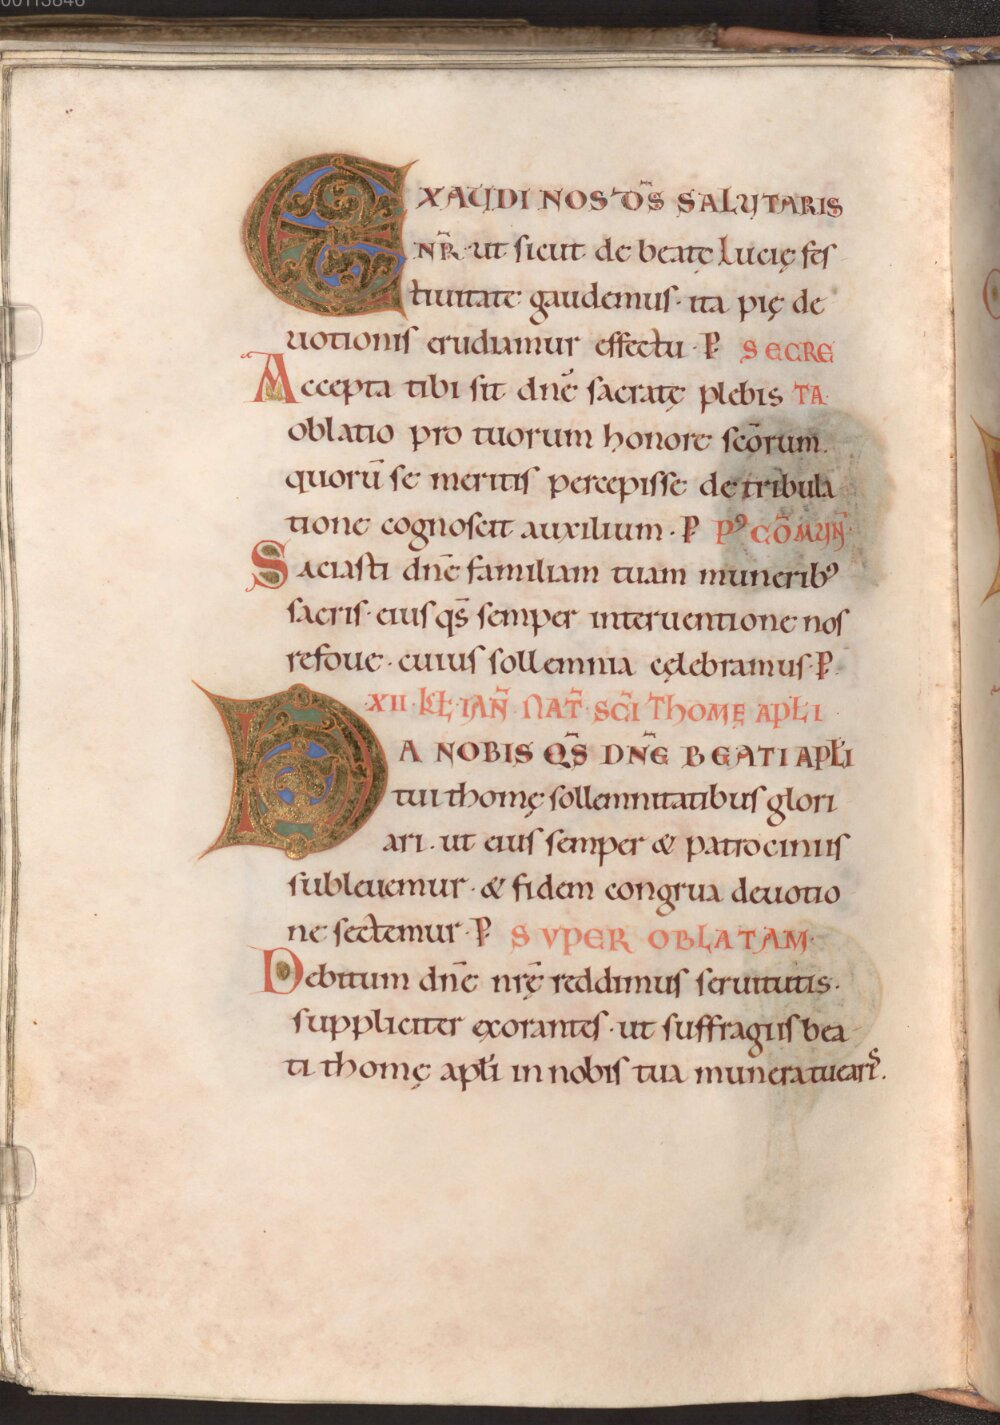 EXAUDI NOS DS̄ SALUTARIS
NR̄. ut sicut de beatę Lucię fes
tiuitate gaudemus. ita pię de
uotionis erudiamur effectu. P SECRE
Accepta tibi sit dnē sacratę plebis TA.
oblatio pro tuorum honore scōrum.
quorū se meritis percepisse de tribula
tione cognoscit auxilium. P Pꝰ CŌMUN̄.
Saciasti dnē familiam tuam muneribꝰ
sacris. eius qs̄ semper interuentione nos
refoue. cuius sollemnia cęlebramus. P.
XII. KŁ. IAN̄. NAT̄. SCĪ THOMĘ APŁI
DA NOBIS QS̄ DNĒ BEATI APŁI
tui thomę sollemnitatibus glori
ari. ut eius semper & patrociniis
subleuemur. & fidem congrua deuotio
ne sectemur. P SUPER OBLATAM.
Debitum dnē nrę̄ reddimus seruitutis.
suppliciter exorantes. ut suffragiis bea
ti thomę apłi in nobis tua munera tuearis.